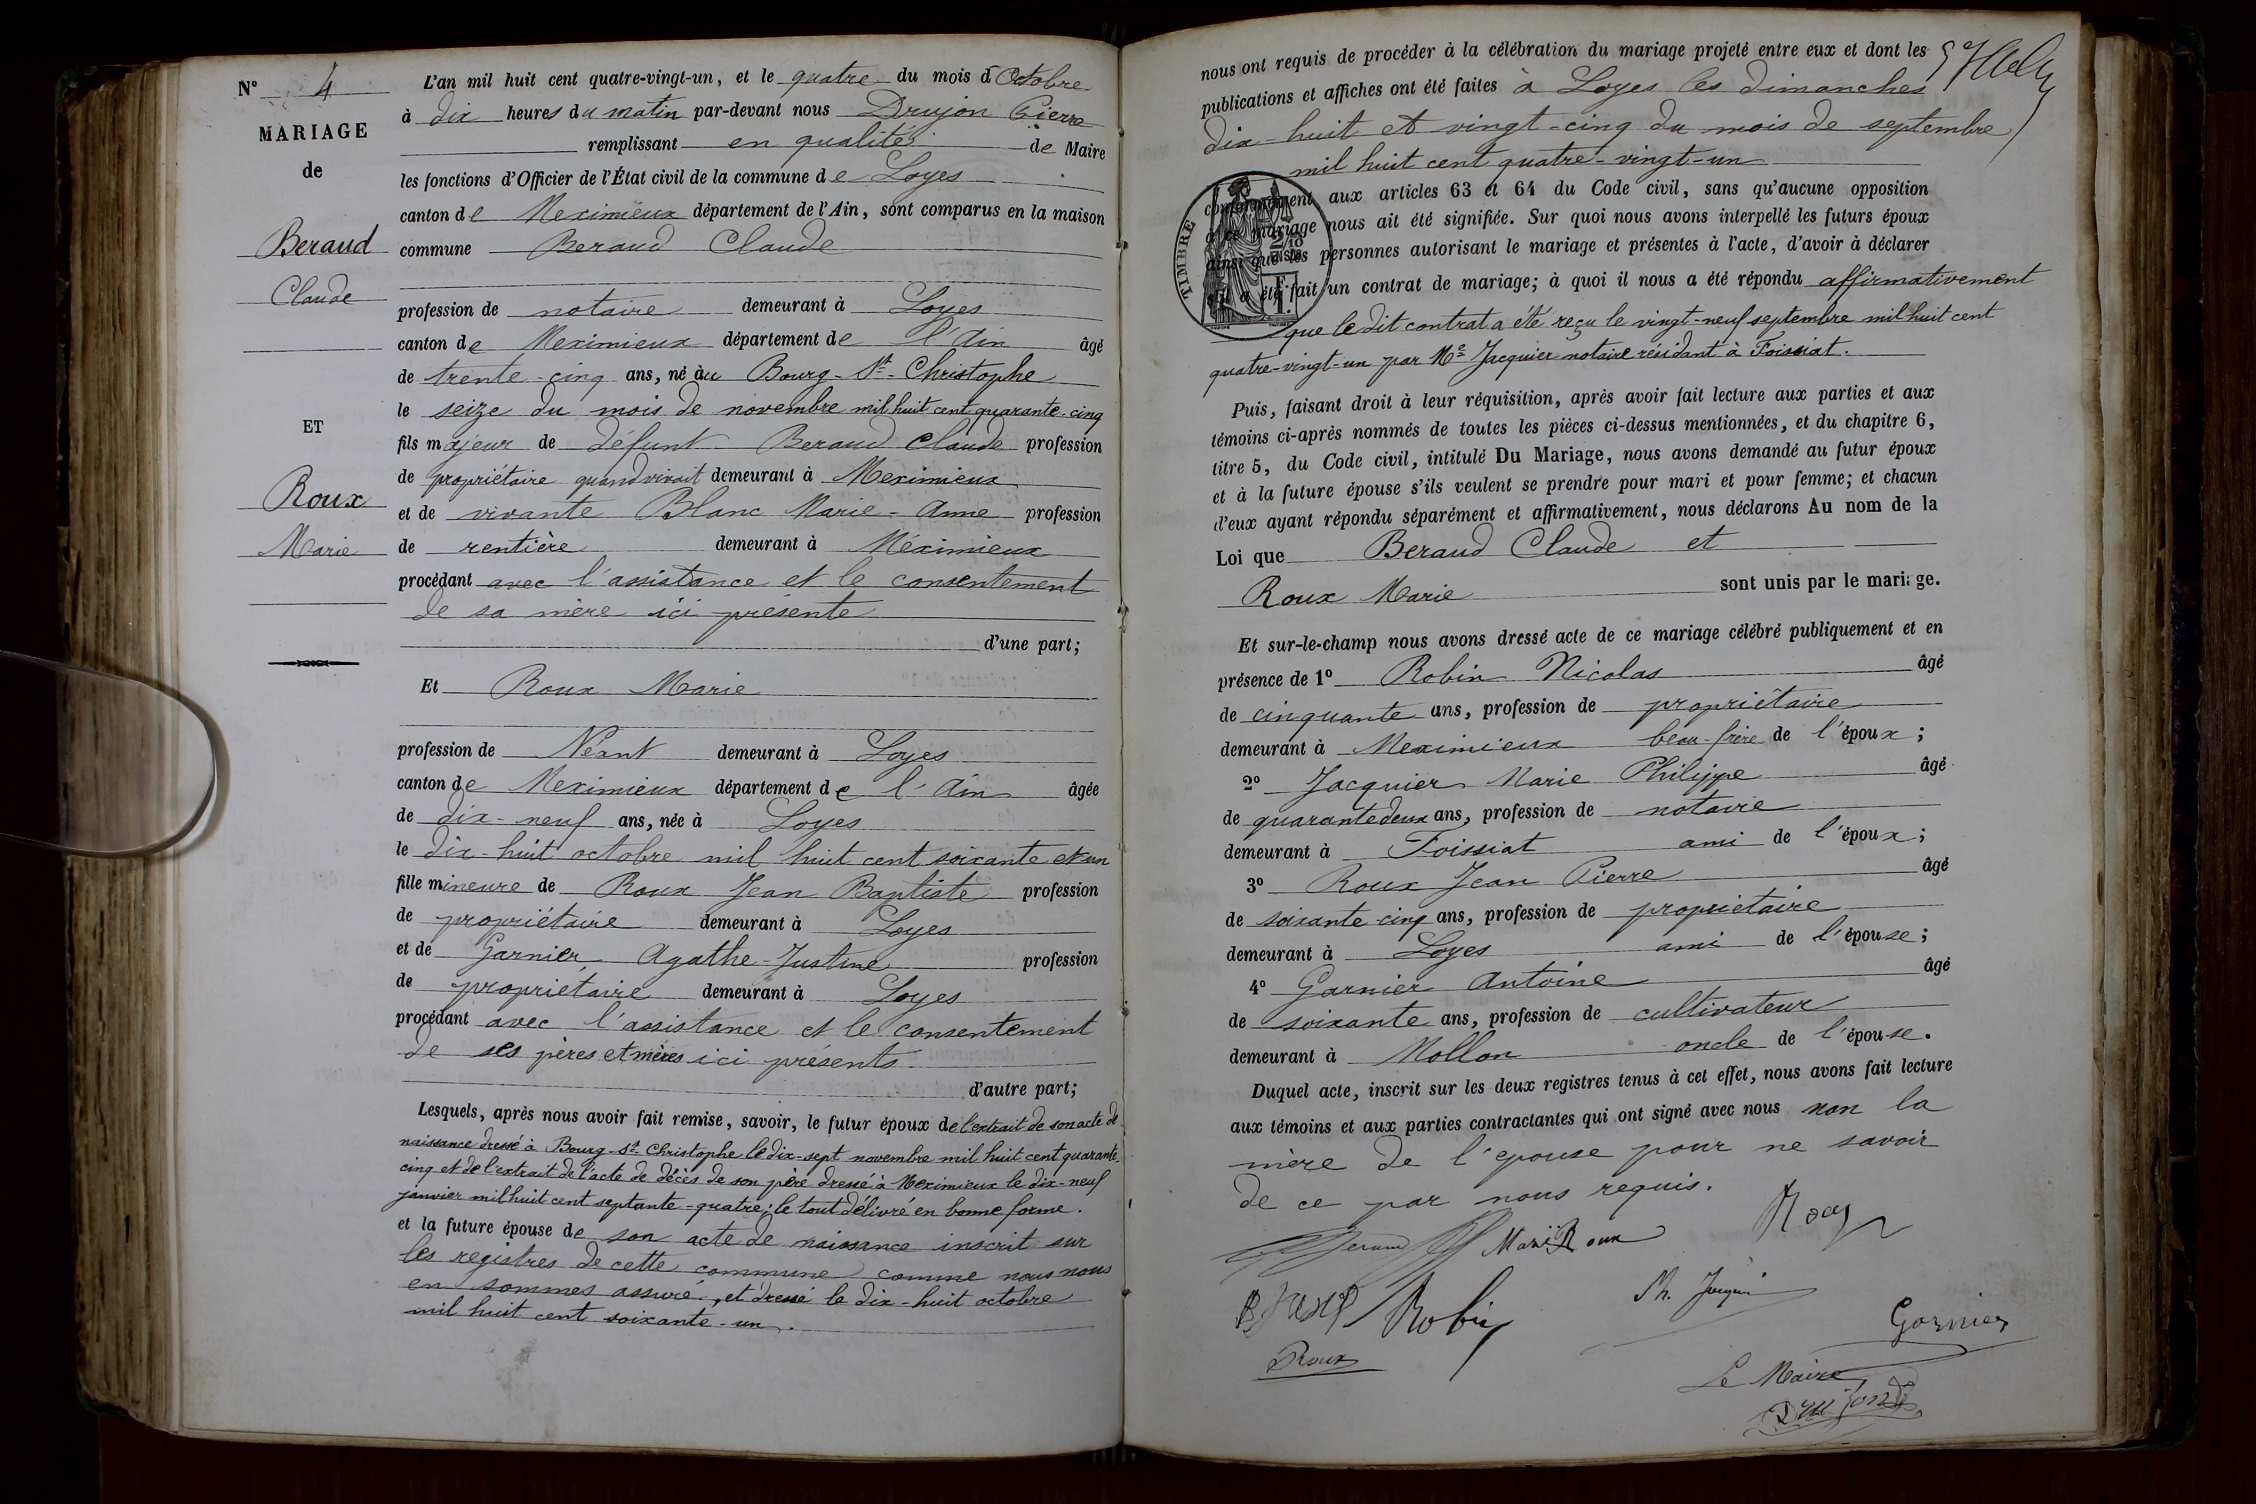 N° 4
MARIAGE
de
Beraud
Claude
ET
Roux
Marie
L'an mil huit cent quatre-vingt-un, et le quatre du mois d'Octobre
à dix heures du matin par-devant nous Drujon Pierre
remplissant en qualité de Maire
les fonctions d'Officier de l'État civil de la commune de Loyes
canton de Meximieux département de l'Ain, sont comparus en la maison
commune Beraud Claude
profession de notaire demeurant à Loyes
canton de Meximieux département de l'Ain âgé
de trente-cinq ans, né au Bourg-St-Christophe
le seize du mois de novembre mil huit cent quarante-cinq
fils majeur de défunt Beraud Claude profession
de propriétaire quand vivait demeurant à Meximieux
et de vivante Blanc Marie-Anne profession
de rentière demeurant à Méximieux
procédant avec l'assistance et le consentement
de sa mère ici présente
d'une part;
Et Roux Marie
profession de Néant demeurant à Loyes
canton de Meximieux département de l'Ain âgée
de dix-neuf ans, née à Loyes
le dix-huit octobre mil huit cent soixante et un
fille mineure de Roux Jean Baptiste profession
de propriétaire demeurant à Loyes
et de Garnier Agathe-Justine profession
de propriétaire demeurant à Loyes
procédant avec l'assistance et le consentement
de ses pères et mères ici présents
d'autre part;
Lesquels, après nous avoir fait remise, savoir, le futur époux de l'extrait de son acte de
naissance dressé à Bourg-St-Christophe le dix-sept novembre mil huit cent quarante-
cinq et de l'extrait de l'acte de décès de son père dressé à Meximieux le dix-neuf
janvier mil huit cent septante-quatre; le tout délivré en bonne forme.
et la future épouse de son acte de naissance inscrit sur
les registres de cette commune comme nous nous
en sommes assuré, et dressé le dix-huit octobre
mil huit cent soixante-un.
nous ont requis de procéder à la célébration du mariage projeté entre eux et dont les
publications et affiches ont été faites à Loyes les dimanches
dix-huit et vingt-cinq du mois de septembre
mil huit cent quatre-vingt-un
conformément aux articles 63 et 64 du Code civil, sans qu'aucune opposition
à ce mariage nous ait été signifiée. Sur quoi nous avons interpellé les futurs époux
ainsi que les personnes autorisant le mariage et présentes à l'acte, d'avoir à déclarer
s'il a été fait un contrat de mariage; à quoi il nous a été répondu affirmativement
TIMBRE
que le dit contrat a été reçu le vingt-neuf septembre mil huit cent
quatre-vingt-un par Me Jacquier notaire résidant à Foissiat.
Puis, faisant droit à leur réquisition, après avoir fait lecture aux parties et aux
témoins ci-après nommés de toutes les pièces ci-dessus mentionnées, et du chapitre 6,
titre 5, du Code civil, intitulé Du Mariage, nous avons demandé au futur époux
et à la future épouse s'ils veulent se prendre pour mari et pour femme; et chacun
d'eux ayant répondu séparément et affirmativement, nous déclarons Au nom de la
Loi que Beraud Claude et
Roux Marie sont unis par le mariage.
Et sur-le-champ nous avons dressé acte de ce mariage célébré publiquement et en
présence de 1° Robin Nicolas âgé
de cinquante ans, profession de propriétaire
demeurant à Meximieux beau-frère de l'époux;
2° Jacquier Marie Philippe âgé
de quarante deux ans, profession de notaire
demeurant à Foissiat ami de l'époux;
3° Roux Jean Pierre âgé
de soixante cinq ans, profession de propriétaire
demeurant à Loyes ami de l'épouse;
4° Garnier Antoine âgé
de soixante ans, profession de cultivateur
demeurant à Mollon oncle de l'épouse.
Duquel acte, inscrit sur les deux registres tenus à cet effet, nous avons fait lecture
aux témoins et aux parties contractantes qui ont signé avec nous non la
mère de l'épouse pour ne savoir
de ce par nous requis.
Beraud Marie Roux
Robin Ph. Jacquier
Garnier
Roux
Le Maire
Drujond